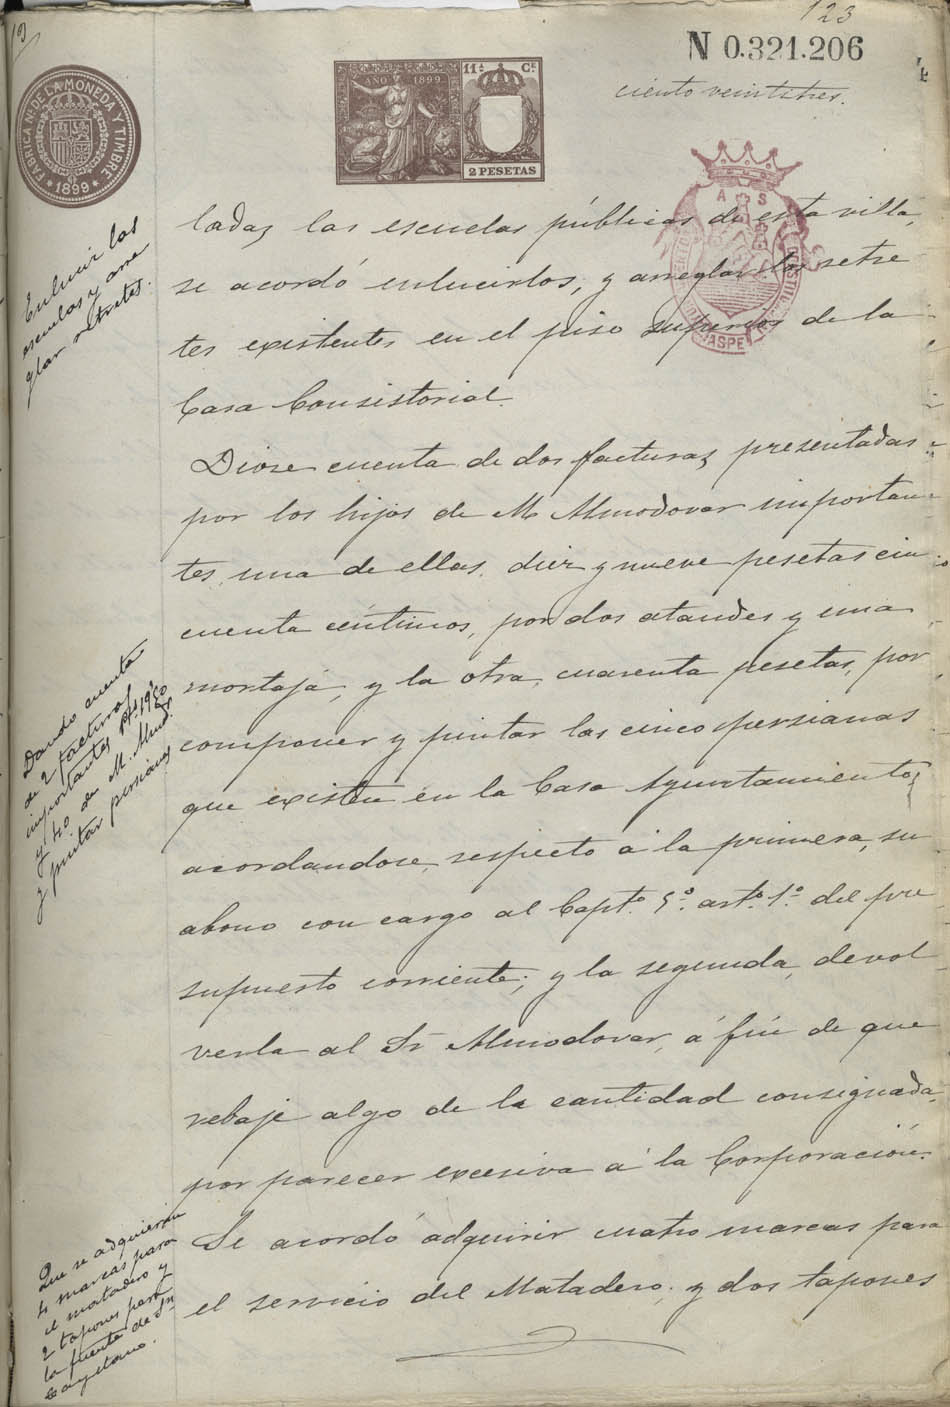 123
N 0.321.206
ciento veintitres.
FABRICA NAL DE LA MONEDA Y TIMBRE
* 1899 *
AÑO 1899
11ª Cª
2 PESETAS
A S
CASPE
Enlucir las
escuelas y arre
glar retretes.
ladas las escuelas públicas de esta villa,
se acordó enlucirlos, y arreglar los retre
tes existentes en el piso superior de la
Casa Consistorial.
Diose cuenta de dos facturas presentadas
por los hijos de M. Almodovar importan
tes, una de ellas, diez y nueve pesetas cin
cuenta céntimos, por dos ataudes y una
mortaja, y la otra, cuarenta pesetas, por
componer y pintar las cinco persianas
que existen en la Casa Ayuntamiento;
acordandose, respecto á la primera, su
abono con cargo al Capto. 5º. arto. 1º. del pre
supuesto corriente; y la segunda, devol
verla al Sr Almodovar, á fin de que
rebaje algo de la cantidad consignada,
por parecer excesiva á la Corporación.
Se acordó adquirir cuatro marcas para
el servicio del Matadero, y dos tapones
Dando cuenta
de 2 facturas
importantes pts 19'50
y 40 de M. Almod.
y pintar persianas
Que se adquieran
4 marcas para
el matadero y
2 tapones para
la fuente de Sn
Cayetano.